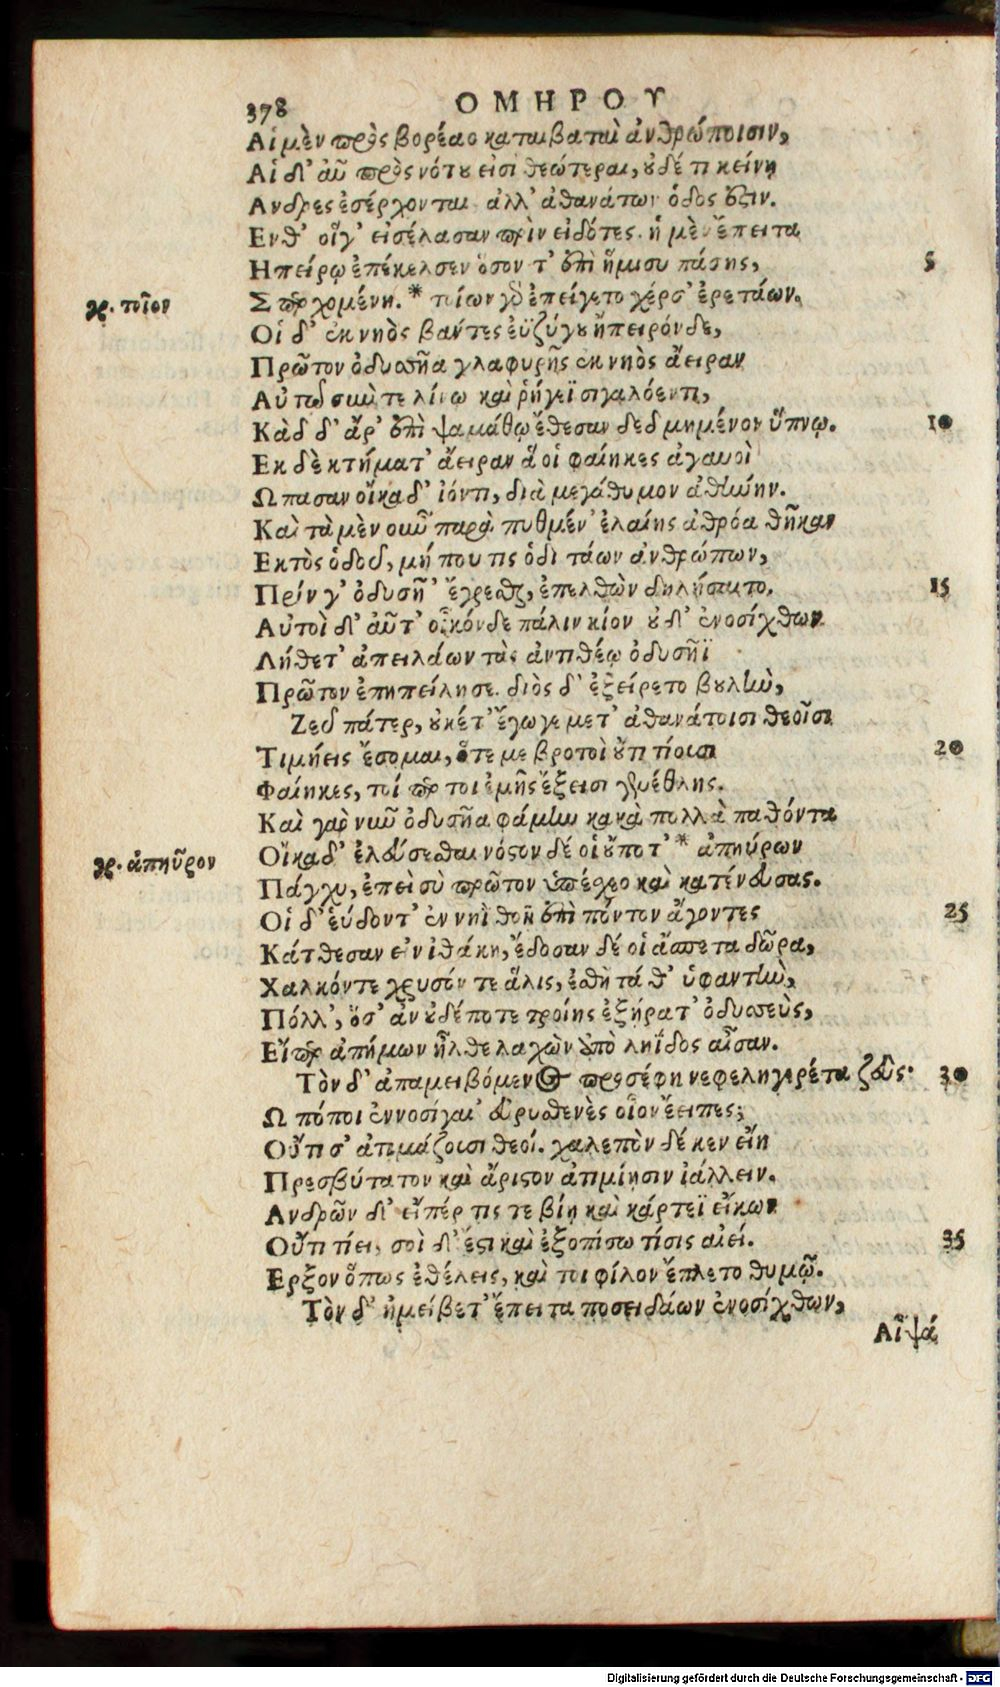 378 ΟΜΗΡΟΥ
Αἱ μὲν πρὸς βορέαο καταιβαταὶ ἀνθρώποισιν,
Αἱ δ' αὖ πρὸς νότου εἰσὶ θεώτεραι, οὐδέ τι κείνῃ
Ανδρες ἐσέρχονται ἀλλ' ἀθανάτων ὁδός ἐστιν.
Ενθ' οἵγ' εἰσέλασαν πρὶν εἰδότες. ἡ μὲν ἔπειτα
Ηπείρῳ ἐπέκελσεν ὅσον τ' ἐπὶ ἥμισυ πάσης, 5
γρ. τοῖον Σπερχομένη. * τοίων γὰρ ἐπείγετο χέρσ' ἐρετάων.
Οἱ δ' ἐκ νηὸς βάντες ἐϋζύγου ἤπειρόνδε,
Πρῶτον ὀδυσσῆα γλαφυρῆς ἐκ νηὸς ἄειραν
Αὐτῷ σὺν τε λίνῳ καὶ ῥήγεϊ σιγαλόεντι,
Κὰδ δ' ἄρ' ἐπὶ ψαμάθῳ ἔθεσαν δεδμημένον ὕπνῳ. 10
Εκ δὲ κτήματ' ἄειραν ἅ οἱ φαίηκες ἀγαυοὶ
Ωπασαν οἴκαδ' ἰόντι, διὰ μεγάθυμον ἀθήνην.
Καὶ τὰ μὲν οὖν παρὰ πυθμέν' ἐλαίης ἀθρόα θῆκαν
Εκτὸς ὁδοῦ, μή που τις ὁδιτάων ἀνθρώπων,
Πρίν γ' ὀδυσῆ' ἔγρεσθαι, ἐπελθὼν δηλήσαιτο. 15
Αὐτοὶ δ' αὖτ' οἶκόνδε πάλιν κίον οὐδ' ἐνοσίχθων
Λήθετ' ἀπειλάων τὰς ἀντιθέῳ ὀδυσῆϊ
Πρῶτον ἐπηπείλησε. διὸς δ' ἐξείρετο βουλὴν,
Ζεῦ πάτερ, οὐκέτ' ἔγωγε μετ' ἀθανάτοισι θεοῖσι
Τιμήεις ἔσομαι, ὅτε με βροτοὶ οὔτι τίουσι 20
Φαίηκες, τοί πέρ τοι ἐμῆς ἔξεισι γενέθλης.
Καὶ γὰρ νῦν ὀδυσῆα φάμην κακὰ πολλὰ παθόντα
γρ. ἀπηῦρον Οἴκαδ' ἐλεύσεσθαι νόστον δέ οἱ οὔποτ' * ἀπηύρων
Πάγχυ, ἐπεὶ σὺ πρῶτον ὑπέσχεο καὶ κατένευσας.
Οἱ δ' εὕδοντ' ἐν νηῒ θοῇ ἐπὶ πόντον ἄγοντες 25
Κάτθεσαν εἰν ἰθάκῃ, ἔδοσαν δέ οἱ ἄσπετα δῶρα,
Χαλκόντε χρυσόν τε ἅλις, ἐσθῆτά θ' ὑφαντὴν,
Πόλλ', ὅσ' ἂν οὐδέποτε τροίης ἐξήρατ' ὀδυσσεὺς,
Εἴπερ ἀπήμων ἦλθε λαχὼν ἀπὸ ληΐδος αἶσαν.
Τὸν δ' ἀπαμειβόμενος προσέφη νεφεληγερέτα ζεύς· 30
Ω πόποι ἐννοσίγαι' εὐρυσθενὲς οἷον ἔειπες;
Οὔτι σ' ἀτιμάζουσι θεοί. χαλεπὸν δέ κεν εἴη
Πρεσβύτατον καὶ ἄριστον ἀτιμίῃσιν ἰάλλειν.
Ανδρῶν δ' εἴπέρ τις τε βίῃ καὶ κάρτεϊ εἴκων
Οὔτι τίει, σοὶ δ' ἔστι καὶ ἐξοπίσω τίσις αἰεί. 35
Ερξον ὅπως ἐθέλεις, καὶ τοι φίλον ἔπλετο θυμῷ.
Τὸν δ' ἠμείβετ' ἔπειτα ποσειδάων ἐνοσίχθων,
Αἶψά
Digitalisierung gefördert durch die Deutsche Forschungsgemeinschaft - DFG